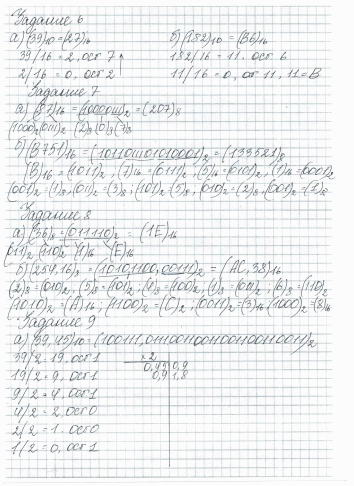 Задание 6
а) (39)₁₀=(27)₁₆ б) (182)₁₀=(B6)₁₆
39/16=2, ост 7 182/16=11. ост 6
2/16=0, ост 2 11/16=0, ост 11, 11=B
Задание 7
а) (87)₁₆=(10000111)₂=(207)₈
(1000)₂(0111)₂ (2)₈(0)₈(7)₈
б) (B751)₁₆=(1011011101010001)₂=(133521)₈
(B)₁₆=(1011)₂, (7)₁₆=(0111)₂, (5)₁₆=(0101)₂, (1)₁₆=(0001)₂
(001)₂=(1)₈, (011)₂=(3)₈; (101)₂=(5)₈, (010)₂=(2)₈, (001)₂=(1)₈
Задание 8
а) (36)₈=(011110)₂=(1E)₁₆
(011)₂, (110)₂ (1)₁₆ (E)₁₆
б) (254,16)₈=(10101100,00111)₂=(AC,38)₁₆
(2)₈=(010)₂, (5)₈=(101)₂, (4)₈=(100)₂, (1)₈=(001)₂, (6)₈=(110)₂
(1010)₂=(A)₁₆; (1100)₂=(C)₂; (0011)=(3)₁₆, (1000)₂=(8)₁₆
Задание 9
а) (39,45)₁₀=(100111,01110011001100110011)₂
39/2=19, ост 1 ×2
19/2=9, ост 1 0,45 0,9
9/2=4, ост 1 0,9 1,8
4/2=2, ост 0
2/2=1. ост 0
1/2=0, ост 1